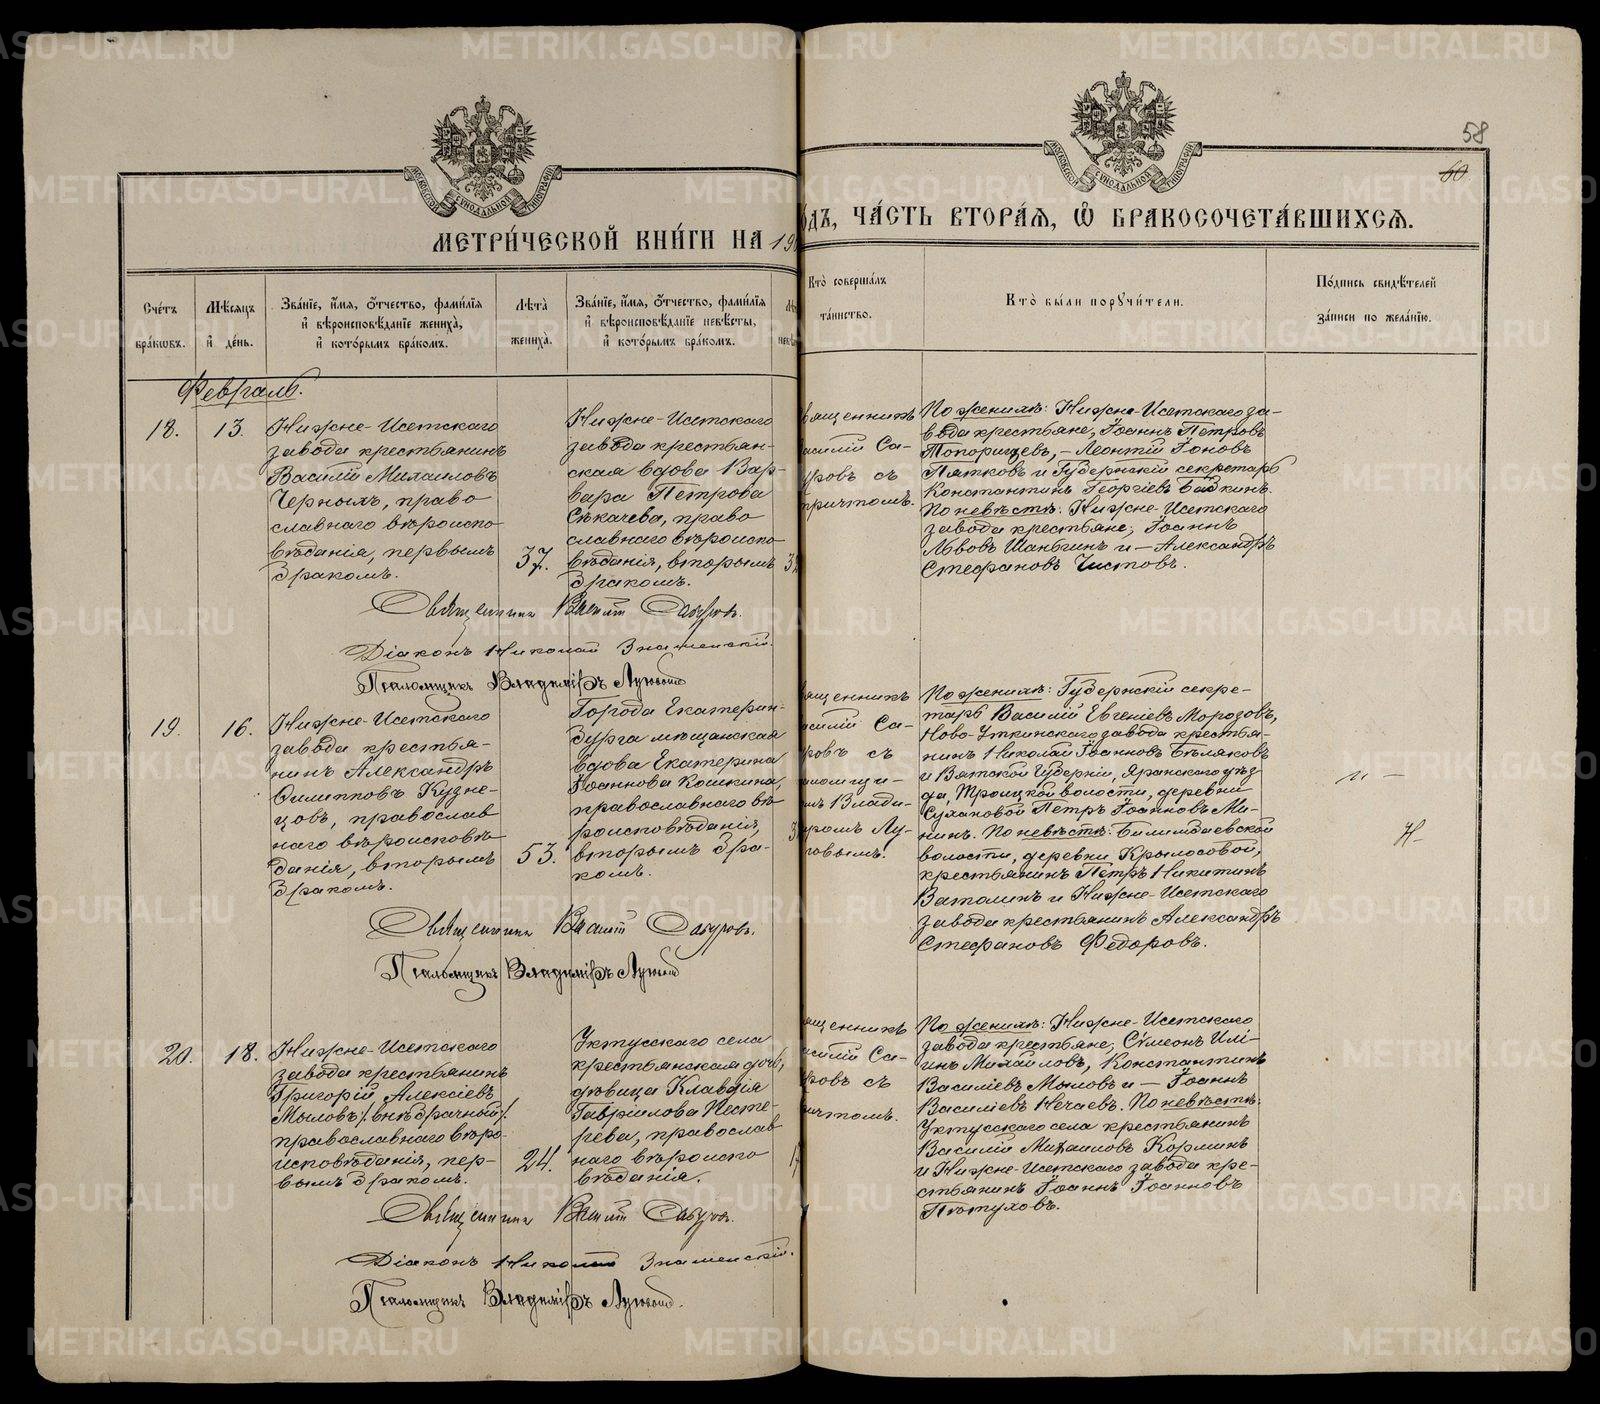 58
60
МОСКОВСКОЙ СѴНОДАЛЬНОЙ ТИПОГРАФІИ
МОСКОВСКОЙ СѴНОДАЛЬНОЙ ТИПОГРАФІИ
МЕТРИ́ЧЕСКОЙ КНИ́ГИ НА 19
ОДЪ, ЧА́СТЬ ВТОРА́Я, Ѽ БРАКОСОЧЕТА́ВШИХСЯ.
Сче́тъ бра́кѡвъ.
Мѣ́сяцъ и҆ де́нь.
Зва́нїе, и҆́мя, ѻ҆́тчество, фами́лїя и҆ вѣроисповѣ́данїе жениха̀, и҆ кото́рымъ бра́комъ.
Лѣта̀ жениха̀.
Зва́нїе, и҆́мя, ѻ҆́тчество, фами́лїя и҆ вѣроисповѣ́данїе невѣ́сты, и҆ кото́рымъ бра́комъ.
Кто̀ соверша́лъ та́инство.
Кто̀ бы́ли порꙋчи́тели.
По́дпись свидѣ́телей за́писи по жела́нїю.
Февраль.
18.
13.
Нижне-Исетскаго
завода крестьянинъ
Василій Михаиловъ
Черныхъ, право
славнаго вѣроиспо
вѣданія, первымъ
бракомъ.
37.
Нижне-Исетскаго
завода крестьян-
ская вдова Вар-
вара Петрова
Сѣкачева, право
славнаго вѣроиспо
вѣданія, вторымъ
бракомъ.
3
вященникъ
асилій Са-
уровъ съ
причтомъ.
По женихѣ: Нижне-Исетскаго за-
вода крестьяне, Іоаннъ Петровъ
Топорищевъ, - Леонтій Іоновъ
Пятковъ и Губернскій секретарь
Константинъ Георгіевъ Бабкинъ.
По невѣстѣ: Нижне-Исетскаго
завода крестьяне; Іоаннъ
Львовъ Шаньгинъ и - Александръ
Стефановъ Чистовъ.
Священникъ Василій Сабуровъ.
Діаконъ Николай Знаменскій.
Псаломщикъ Владиміръ Луговых
19.
16.
Нижне-Исетскаго
завода крестья-
нинъ Александръ
Филипповъ Кузне-
цовъ, православ
наго вѣроисповѣ
данія, вторымъ
бракомъ.
53.
Города Екатерин-
бурга мѣщанская
вдова Екатерина
Іоаннова Кошкина,
православнаго вѣ
роисповѣданія,
вторымъ бра-
комъ.
3
ященникъ
асилій Са-
ровъ съ
аломщи-
мъ Влади-
іромъ Лу-
говымъ.
По женихѣ: Губернскій секре-
тарь Василій Евгеніевъ Морозовъ,
Ново-Уткинскаго завода крестья-
нинъ Николай Іоанновъ Бѣляковъ
и Вятской Губерніи, Яранскаго уѣз-
да, Троицкой волости, деревни
Сухановой Петръ Іоанновъ Ми-
нинъ. По невѣстѣ: Билимбаевской
волости, деревни Крылосовой,
крестьянинъ Петръ Никитинъ
Ватолинъ и Нижне-Исетскаго
завода крестьянинъ Александръ
Стефановъ Федоровъ.
Священникъ Василій Сабуровъ.
Псаломщикъ Владиміръ Луговых
20.
18.
Нижне-Исетскаго
завода крестьянинъ
Григорій Алексіевъ
Мыловъ /внѣбрачный/
православнаго вѣро-
исповѣданія, пер-
вымъ бракомъ.
24.
Уктусскаго села
крестьянская дочь,
дѣвица Клавдія
Гавріилова Песте-
рева, православ
наго вѣроиспо
вѣданія.
1
ященникъ
асилій Са-
ровъ съ
ичтомъ.
По женихѣ: Нижне-Исетскаго
завода крестьяне; Сѵмеонъ Илі-
инъ Михаиловъ, Константинъ
Василіевъ Мыловъ и - Іоаннъ
Василіевъ Нечаевъ. По невѣстѣ:
Уктусскаго села крестьянинъ
Василій Михаиловъ Корминъ
и Нижне-Исетскаго завода кре-
стьянинъ Іоаннъ Іоанновъ
Пѣтуховъ.
Священникъ Василій Сабуровъ.
Діаконъ Николай Знаменскій.
Псаломщикъ Владиміръ Луговых.
METRIKI.GASO-URAL.RU